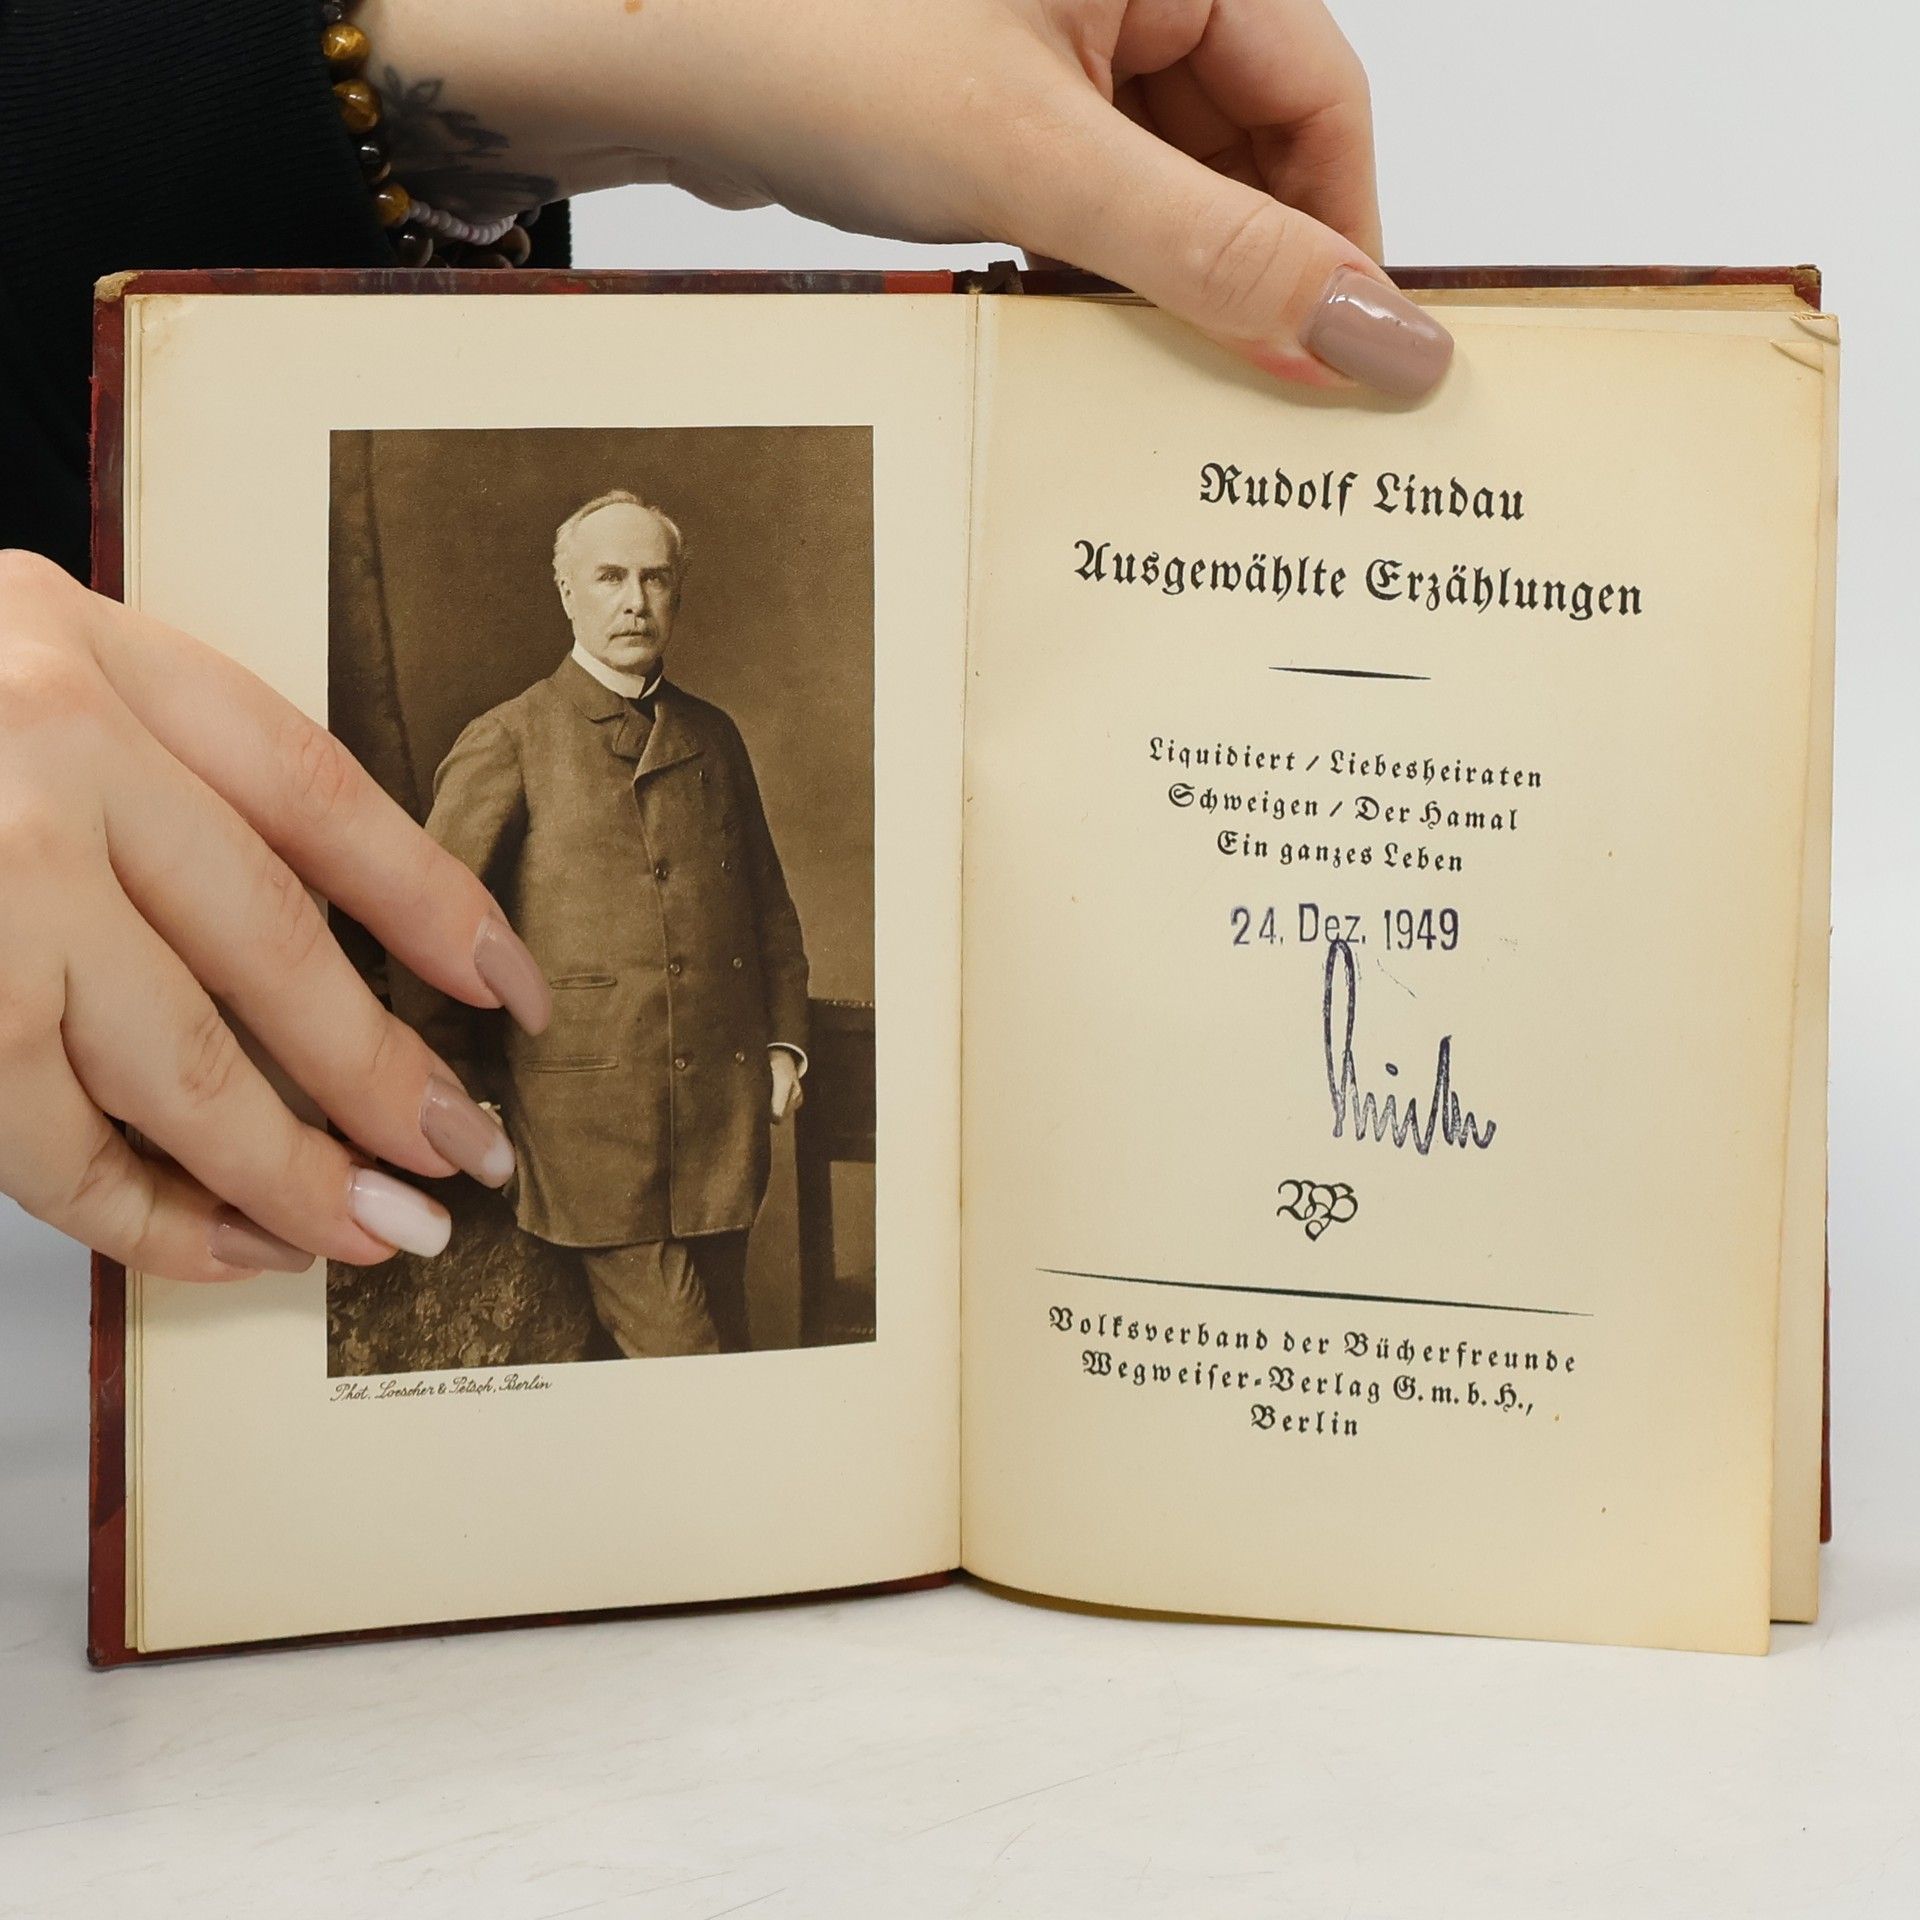 Phot. Loescher & Petsch, Berlin
Rudolf Lindau
Ausgewählte Erzählungen
Liquidiert / Liebesheiraten
Schweigen / Der Hamal
Ein ganzes Leben
24. Dez. 1949
VB
Volksverband der Bücherfreunde
Wegweiser-Verlag G.m.b.H.,
Berlin